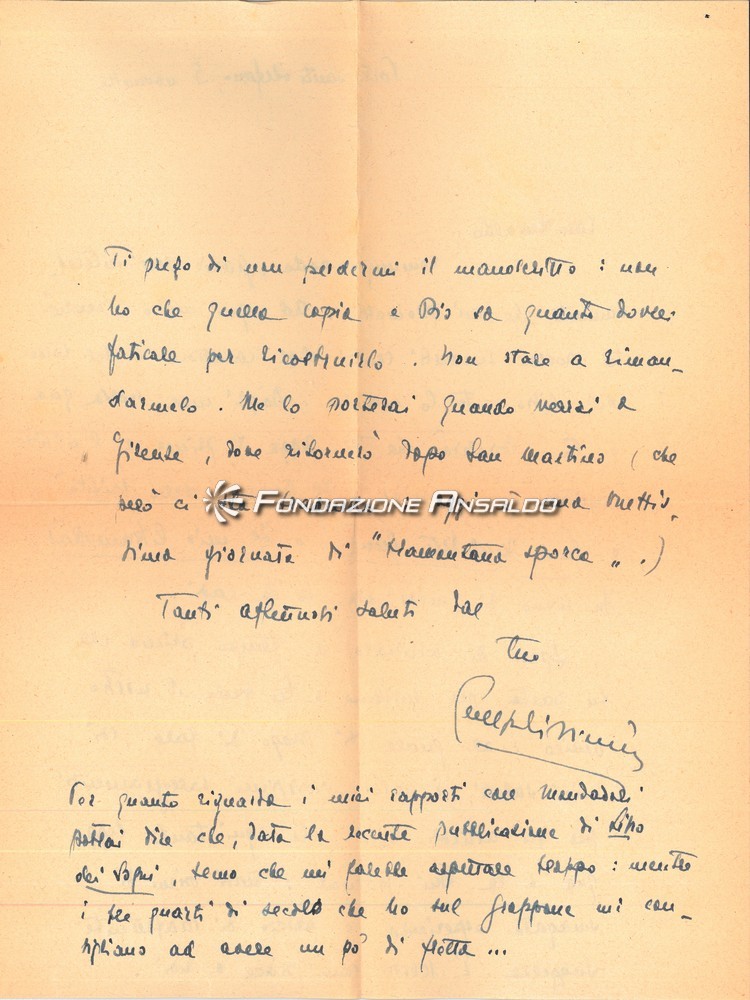 Ti prego di non perdermi il manoscritto : non
ho che quella copia e Dio sa quanto dovrei
faticare per ricostruirlo . Non stare a riman-
darmelo . Me lo porterai quando verrai a
Firenze , dove ritornerò dopo San Martino ( che
però ci sta
FONDAZIONE ANSALDO
una bruttis-
sima giornata di "tramontana sporca „ . )
Tanti affettuosi saluti dal
tuo
Per quanto riguarda i miei rapporti con Mondadori
potrai dire che , data la recente pubblicazione di Lipo
dei Sogni , temo che mi farebbe aspettare troppo : mentre
i tre quarti di secolo che ho sul groppone mi con-
sigliano ad avere un po' di fretta ...